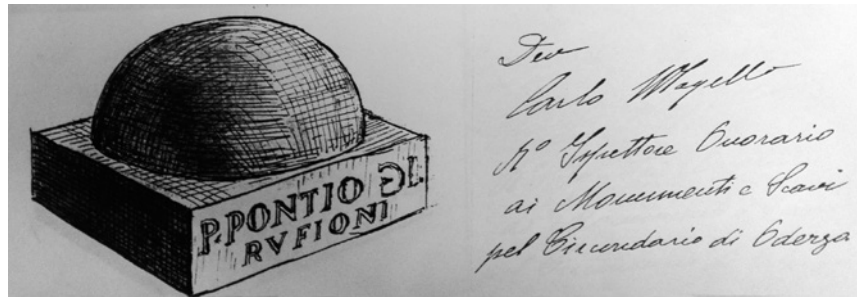 P·PONTIO ƆL.
RVFIONI
Dev
Carlo
R° Ispettore Onorario
ai Monumenti e Scavi
pel Circondario di Oderzo